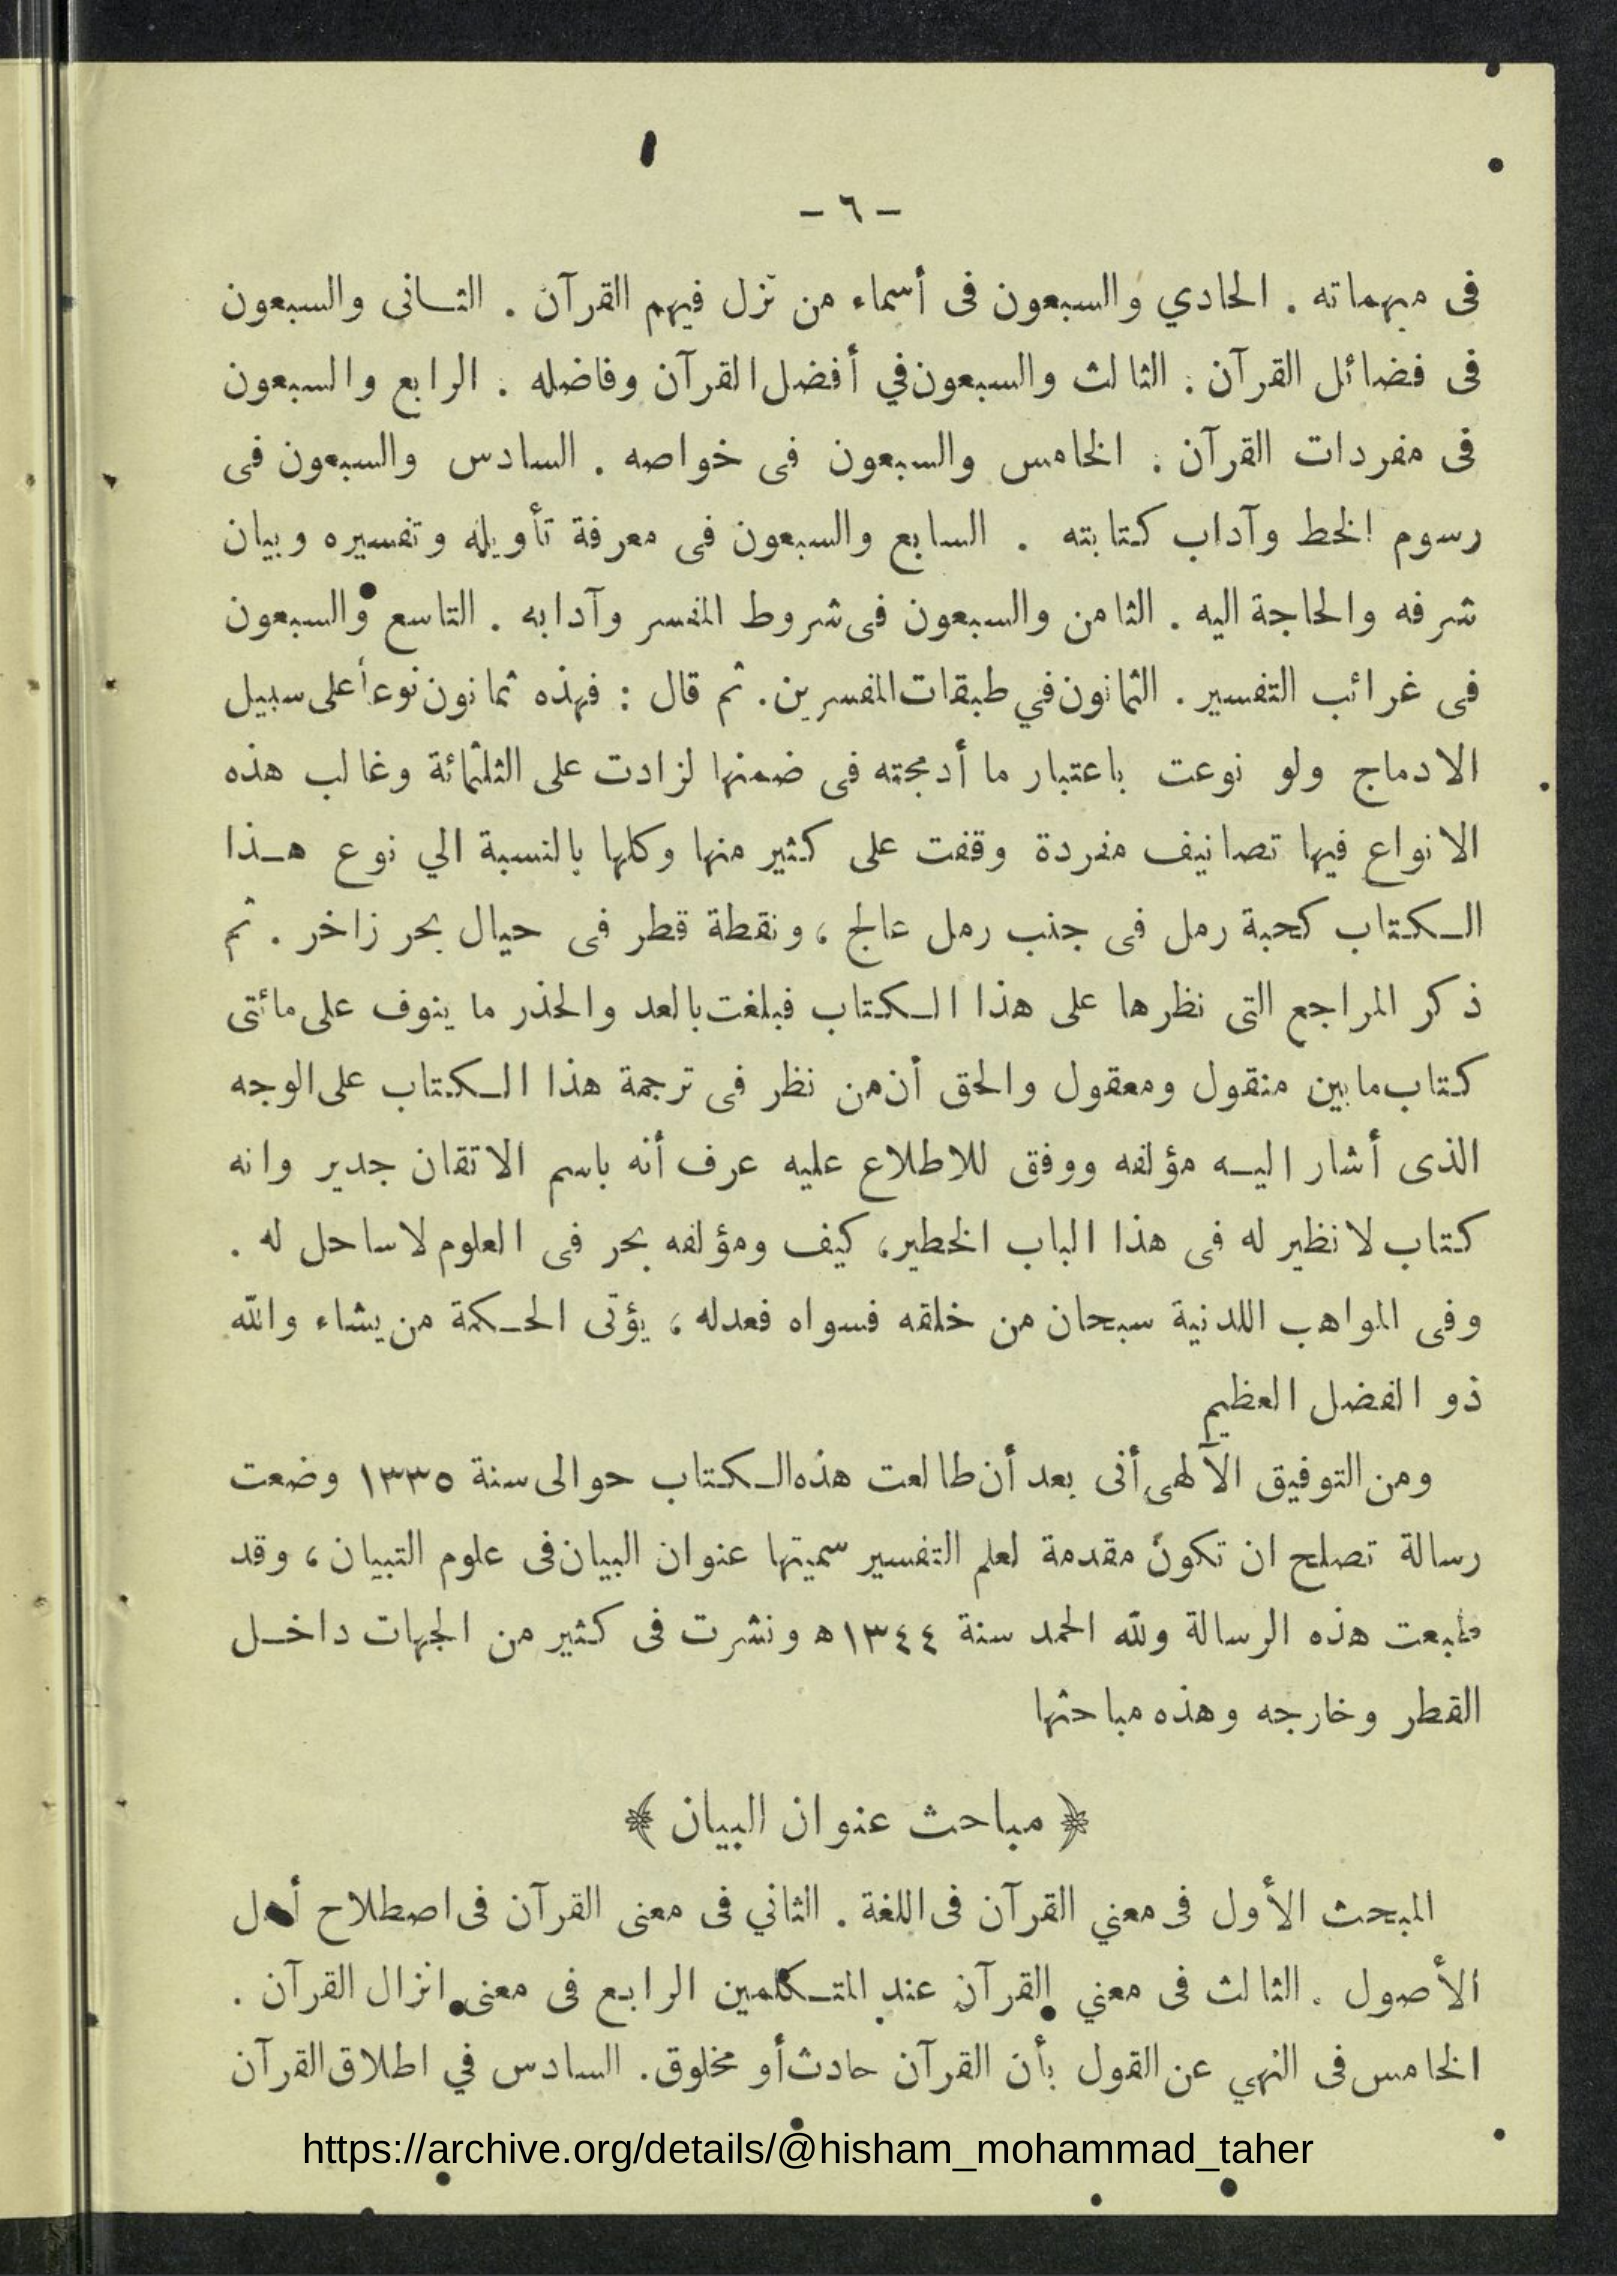 - ٦ -
فى مبهماته . الحادي والسبعون فى أسماء من نزل فيهم القرآن . الثـانى والسبعون
فى فضائل القرآن . الثالث والسبعون في أفضل القرآن وفاضله . الرابع والسبعون
فى مفردات القرآن . الخامس والسبعون فى خواصه . السادس والسبعون فى
رسوم الخط وآداب كتابته . السابع والسبعون فى معرفة تأويله وتفسيره وبيان
شرفه والحاجة اليه . الثامن والسبعون فى شروط المفسر وآدابه . التاسع والسبعون
فى غرائب التفسير . الثمانون في طبقات المفسرين . ثم قال : فهذه ثمانون نوعا على سبيل
الادماج ولو نوعت باعتبار ما أدمجته فى ضمنها لزادت على الثلثمائة وغالب هذه
الانواع فيها تصانيف مفردة وقفت على كثير منها وكلها بالنسبة الي نوع هـذا
الـكتاب كحبة رمل فى جنب رمل عالج ، ونقطة قطر فى حيال بحر زاخر . ثم
ذكر المراجع التى نظرها على هذا الـكتاب فبلغت بالعد والحذر ما ينوف على مائتى
كتاب ما بين منقول ومعقول والحق أن من نظر فى ترجمة هذا الـكتاب على الوجه
الذى أشار اليـه مؤلفه ووفق للاطلاع عليه عرف أنه باسم الاتقان جدير وانه
كتاب لا نظير له فى هذا الباب الخطير ، كيف ومؤلفه بحر فى العلوم لا ساحل له .
وفى المواهب اللدنية سبحان من خلقه فسواه فعدله ، يؤتى الحـكمة من يشاء والله
ذو الفضل العظيم
ومن التوفيق الآلهى أنى بعد أن طالعت هذه الـكتاب حوالى سنة ١٣٣٥ وضعت
رسالة تصلح ان تكون مقدمة لعلم التفسير سميتها عنوان البيان فى علوم التبيان ، وقد
طبعت هذه الرسالة ولله الحمد سنة ١٣٤٤ ه ونشرت فى كثير من الجهات داخـل
القطر وخارجه وهذه مباحثها
﴿ مباحث عنوان البيان ﴾
المبحث الأول فى معني القرآن فى اللغة . الثاني فى معنى القرآن فى اصطلاح أهل
الأصول . الثالث فى معني القرآن عند المتـكلمين الرابع فى معنى انزال القرآن .
الخامس فى النهي عن القول بأن القرآن حادث أو مخلوق . السادس في اطلاق القرآن
https://archive.org/details/@hisham_mohammad_taher